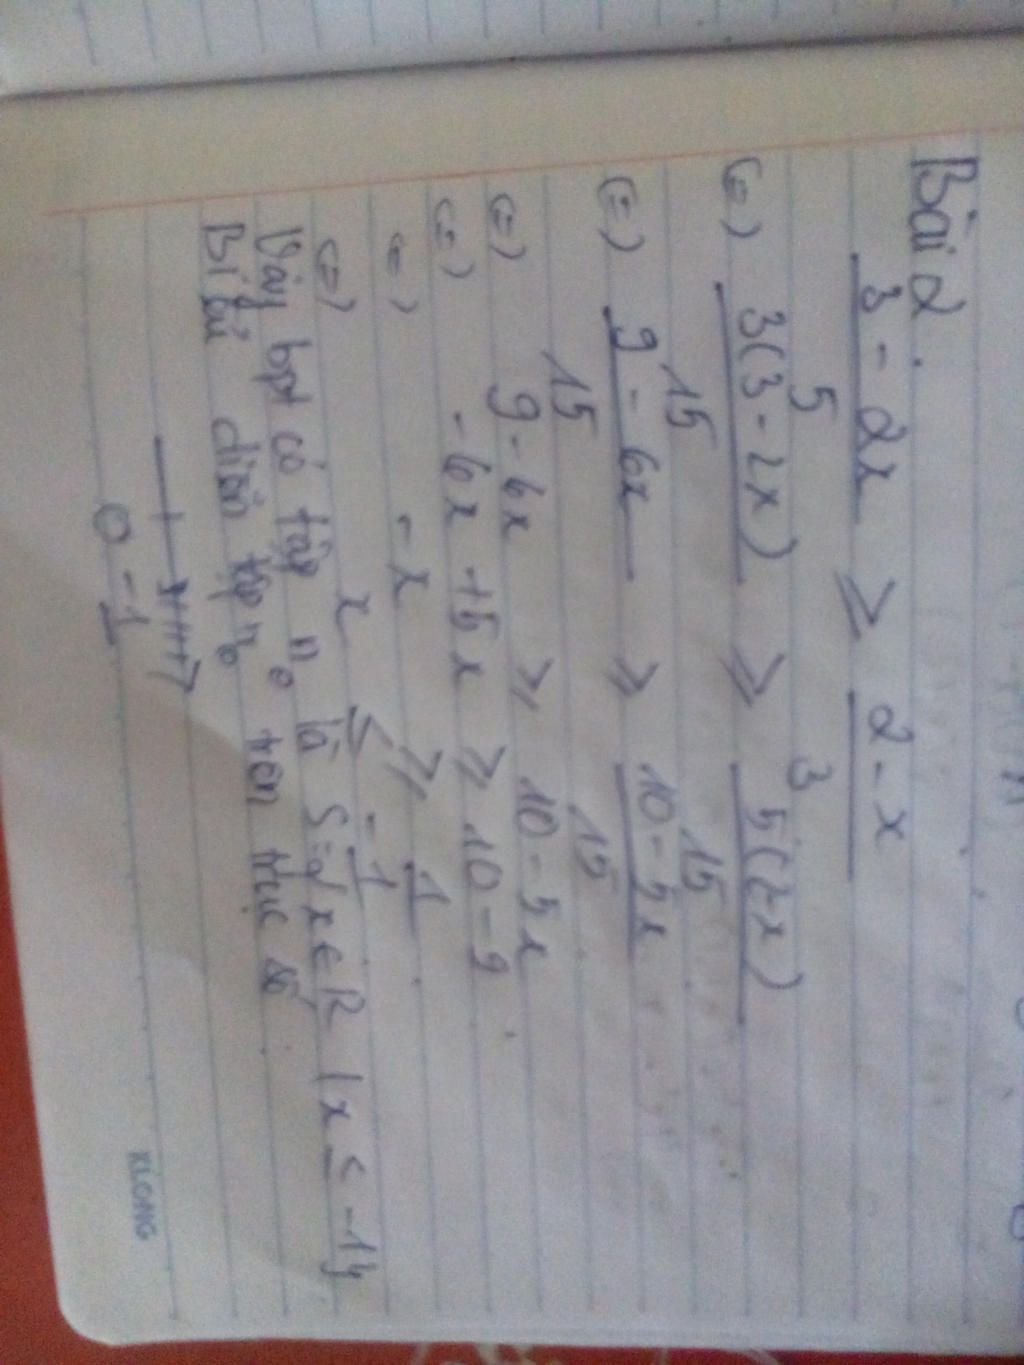 Bài 2.
3 - 2x ≥ 2 - x
5 3
(=) 3(3 - 2x) ≥ 5(2-x)
15 15
(=) 9 - 6x ≥ 10 - 5x
15 15
(=) 9 - 6x ≥ 10 - 5x
(=) - 6x + 5x ≥ 10 - 9
(=) - x ≥ 1
(=) x ≤ - 1
Vậy bpt có tập n0 là S = {x ∈ R / x ≤ -1}
Biểu diễn tập n0 trên trục số
0 -1
KLONG